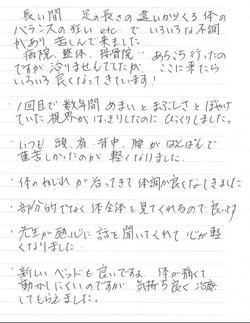 長い間 足の長さの違いからくる体の
バランスの狂い etc で いろいろな不調
があり 苦しんで来ました。
病院、整体、接骨院 あちこち行ったの
ですが 治りませんでしたが、ここに来たら
いろいろ良くなってきています！
・1回目で数年間 めまいと まぶしさと ぼやけ
ていた視界が はっきりしたのに びっくりしました。
・いつも 頭、肩、背中、腰が ぱんぱんで
重苦しかったのが 軽くなりました
・体のねじれが治ってきて 体調が良くなてきました
・部分的でなく 体全体を見てくれるので 良いです
・先生が熱心に 話を聞いてくれて 心が軽
くなりました
・新しい ベッドも 良いですよ 体が痛くて
動かしにくいのですが 気持ち良く 治療
してもらえました。